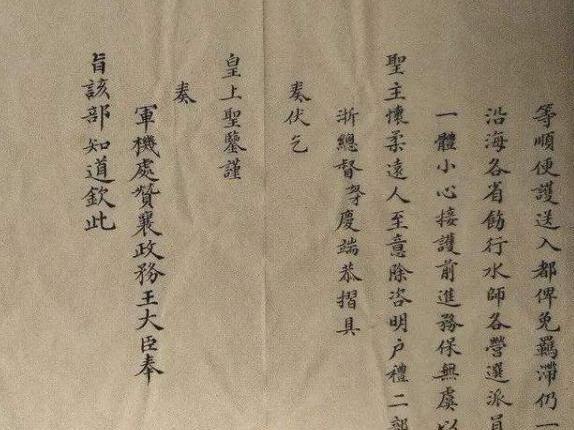 等順便護送入都俾免羈滯仍一
沿海各省飭行水師各營選派員
一體小心接護前進務保無虞以
聖主懷柔遠人至意除咨明戶禮二部
浙總督臣慶端恭摺具
奏伏乞
皇上聖鑒謹
奏
軍機處贊襄政務王大臣奉
旨該部知道欽此